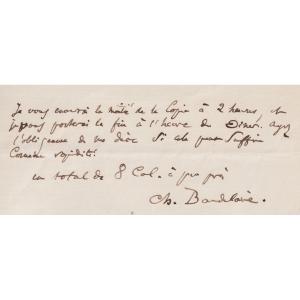 Je vous enverrai la moitié de la Copie à 2 heures et
je vous porterai la fin à l'heure du Dîner. Ayez
l'obligeance de me dire si cela peut suffire
Comme rapidité.
un total de 8 Col. à peu près
Ch. Baudelaire.